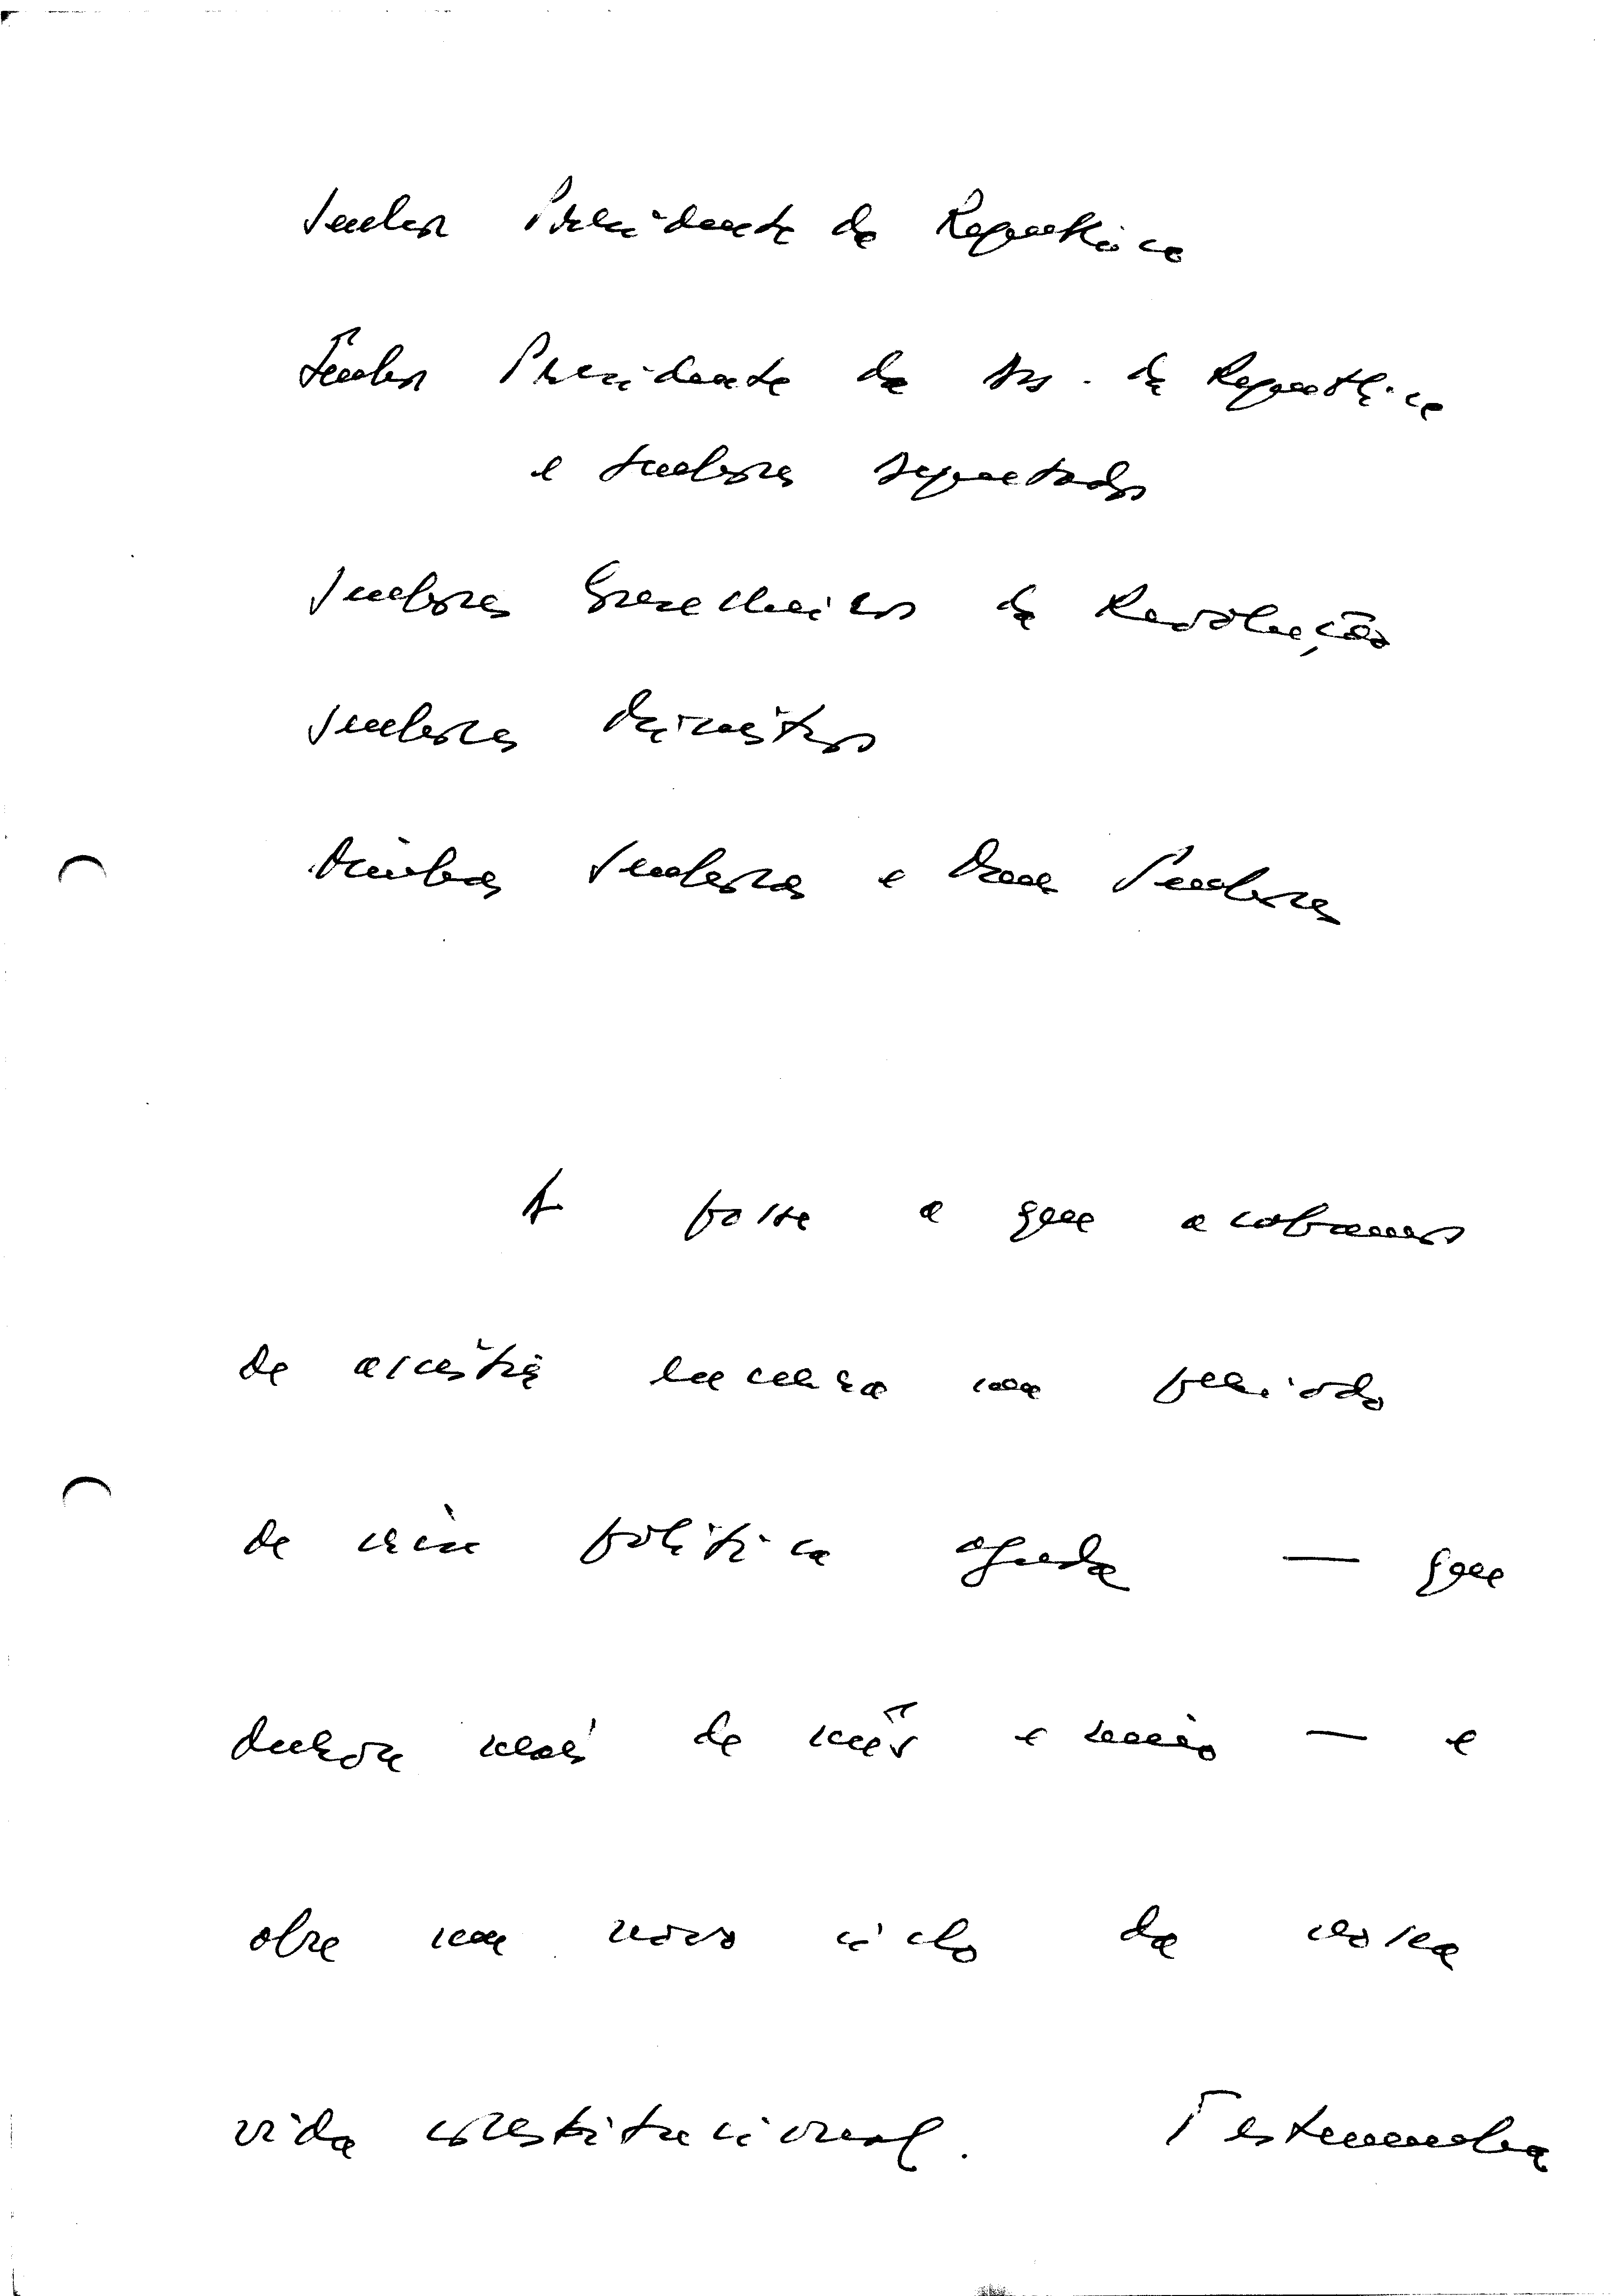 Senhor Presidente da República
Senhor Presidente da Ass. da República
e Senhores Deputados
Senhores Conselheiros da Revolução
Senhores Ministros
Minhas Senhoras e Meus Senhores
A posse a que acabamos
de assistir encerra um período
de crise política aguda — que
durou mais de mês e meio — e
abre um novo ciclo da nossa
vida constitucional. Testemunha